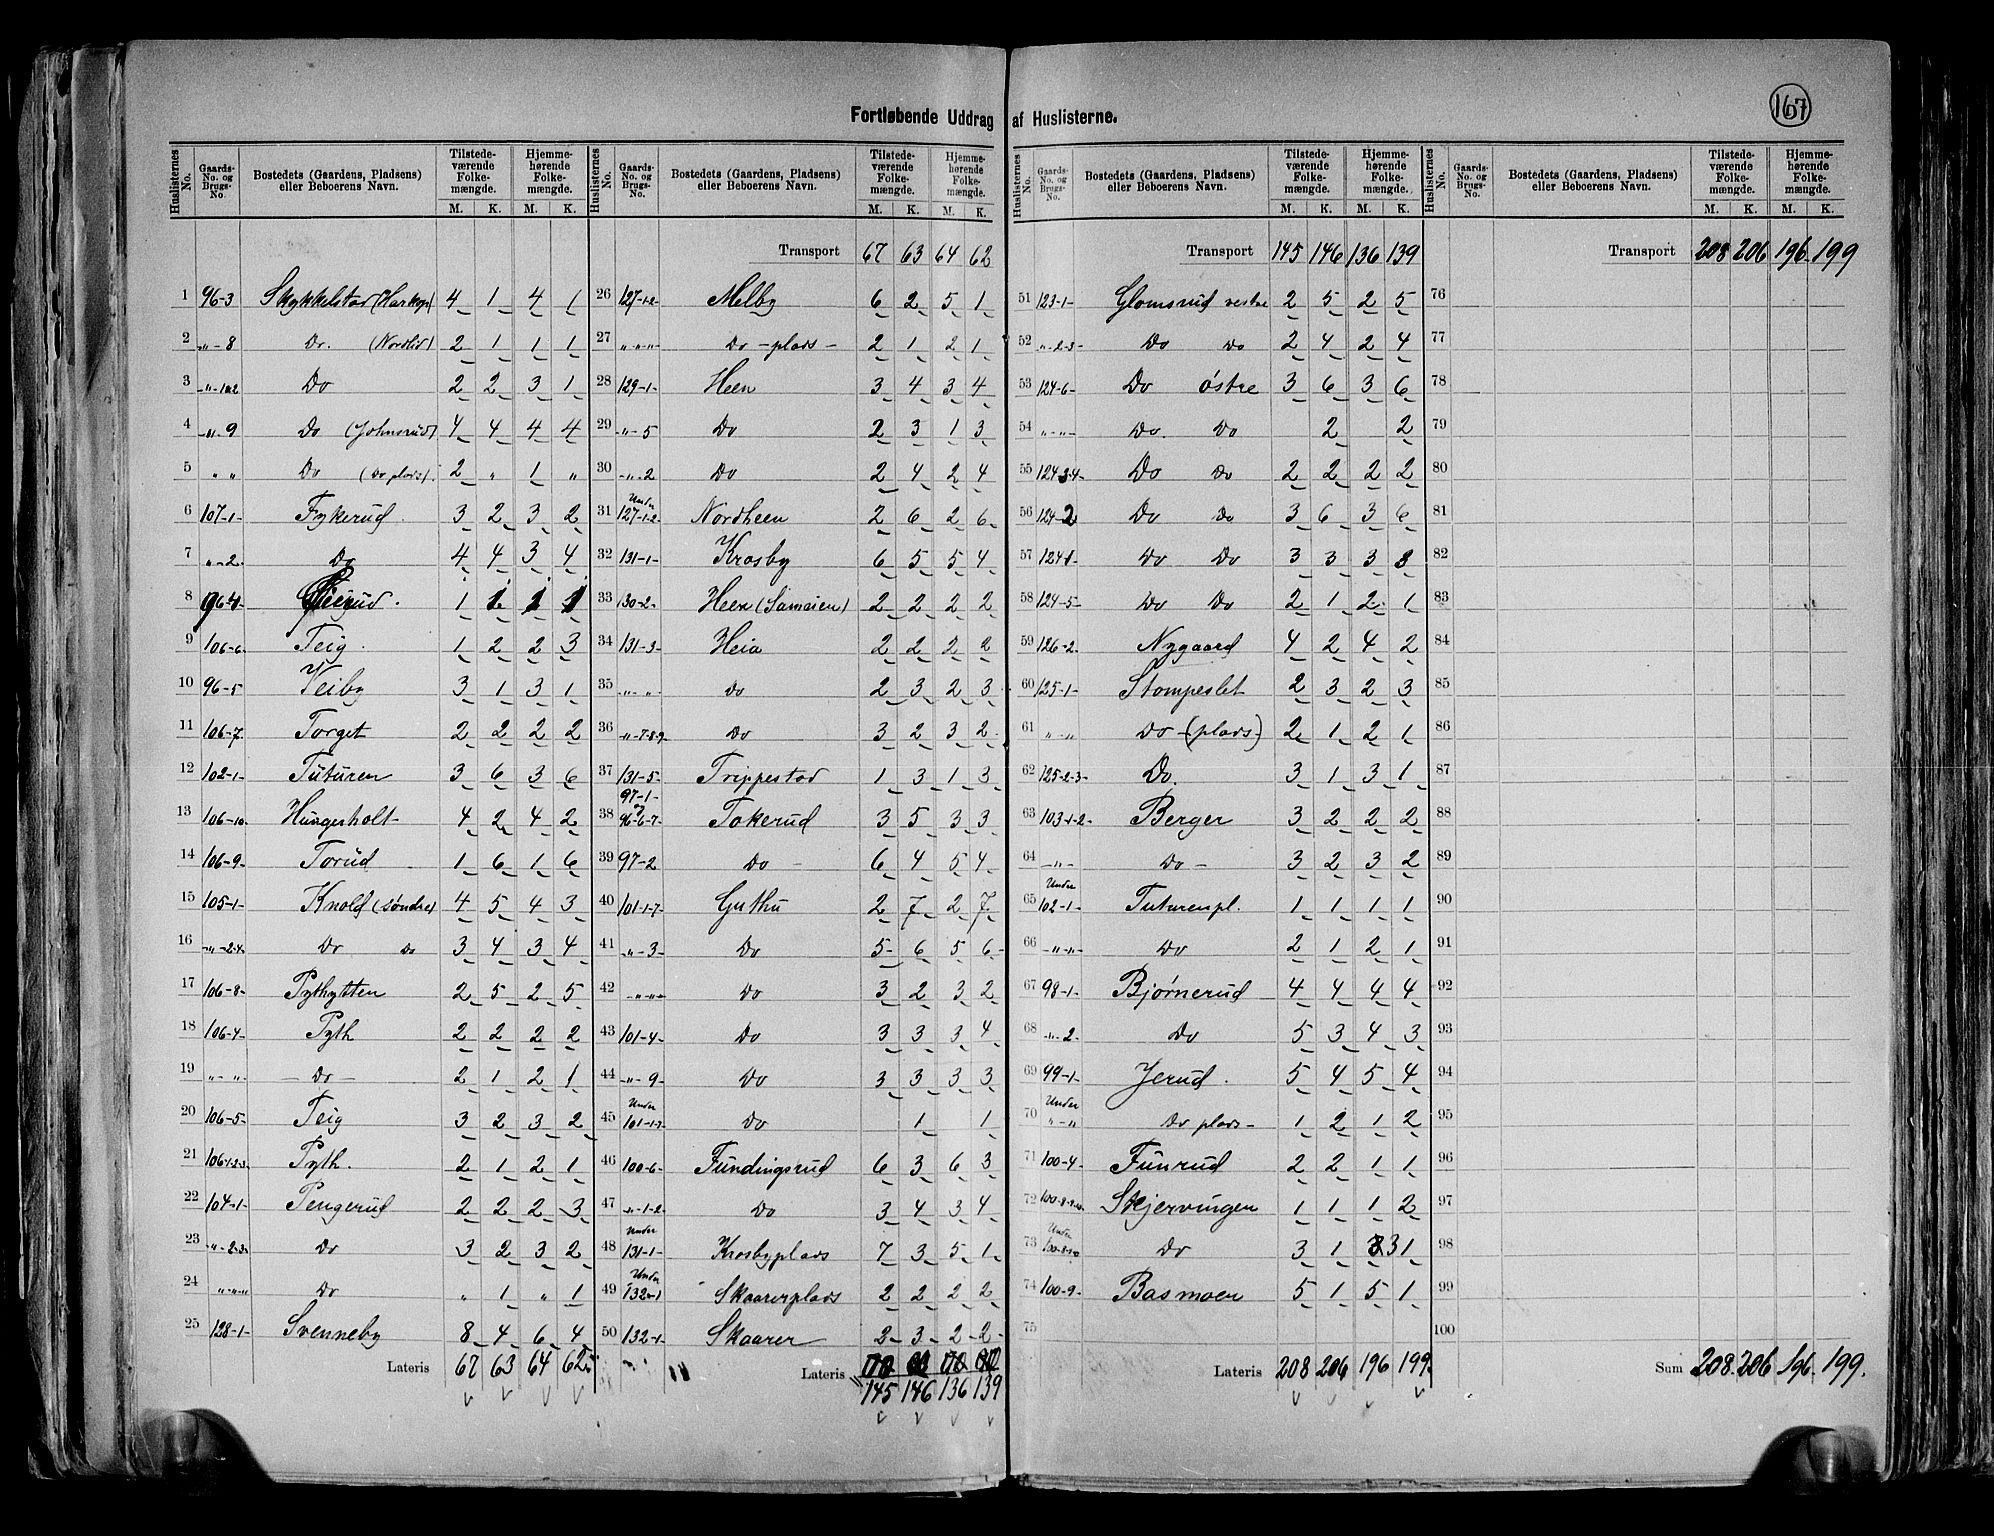 167
Fortløbende Uddrag af Huslisterne.
Huslisternes No. | Gaards-No. og Brugs-No. | Bostedets (Gaardens, Pladsens) eller Beboerens Navn. | Tilstedeværende Folkemængde. M. K. | Hjemmehørende Folkemængde. M. K.
1 96-3 Skykkelstad (Harkop) 4 1 4 1
2 -"-8 Do. (Nordlid) 2 1 1 1
3 -"-1 Do 2 2 3 1
4 -"-9 Do (Johnsrud) 4 4 4 4
5 " " Do (Do plads) 2 " 1 "
6 107-1 Fykerud 3 2 3 2
7 "-2 Do 4 4 3 4
8 96-4 1 1 1 1
9 106-6 Teig 1 2 2 3
10 96-5 Veiby 3 1 3 1
11 106-7 Torget 2 2 2 2
12 102-1 Tuturen 3 6 3 6
13 106-10 Hungerholt 4 2 4 2
14 106-9 Torud 1 6 1 6
15 105-1 Knold (søndre) 4 5 4 3
16 -"-2-4 Do Do 3 4 3 4
17 106-8 Pythytten 2 5 2 5
18 106-4 Pyth 2 2 2 2
19 "-" -Do- 2 1 2 1
20 106-5 Teig 3 2 3 2
21 106-1-2-3 Pyth. 2 1 2 1
22 104-1 Pengerud 2 2 2 3
23 -"-2-3 Do 3 2 3 2
24 "-"-" Do " 1 " 1
25 128-1 Svenneby 8 4 6 4
Lateris 67 63 64 62
Transport 67 63 64 62
26 127-1-2 Melby 6 2 5 1
27 "-"-" Do -plads- 2 1 2 1
28 129-1 Heen 3 4 3 4
29 "-5 Do 2 3 1 3
30 -"-2 Do 2 4 2 4
31 Under 127-1-2 Nordheen 2 6 2 6
32 131-1 Krosby 6 5 5 4
33 130-2 Heen (Sameien) 2 2 2 2
34 131-3 Heia 2 2 2 2
35 "-" Do 2 3 2 3
36 "-7-8-9 Do 3 2 3 2
37 131-5 Trippestad 1 3 1 3
38 97-1 og 96-6-7 Tokerud 3 5 3 3
39 97-2 Do - 6 4 5 4
40 101-1-7 Guthu 2 7 2 7
41 "-3 Do 5 6 5 6
42 "-"-" Do 3 2 3 2
43 101-4 Do 3 3 3 4
44 -"-9 Do 3 3 3 3
45 Under 101-1-7 Do 1 1
46 100-6 Fundingsrud 6 3 6 3
47 -"-1-2 Do 3 4 3 4
48 Under 131-1 Krosbyplads 7 3 5 1
49 Under 132-1 Skaarerplads 2 2 2 2
50 132-1 Skaarer 2 3 2 2
Lateris 145 146 136 139
Transport 145 146 136 139
51 123-1 Glomsrud vestre 2 5 2 5
52 "-2-3 Do Do 2 4 2 4
53 124-6 Do østre 3 6 3 6
54 "-" Do. Do 2 2
55 124-3-4 Do Do 2 2 2 2
56 124-2 Do Do 3 6 3 6
57 124-1 Do Do 3 3 3 3
58 124-5 Do Do 2 1 2 1
59 126-2 Nygaard 4 2 4 2
60 125-1 Stompeslet 2 3 2 3
61 "-" Do -(plads-) 2 1 2 1
62 125-2-3 Do. 3 1 3 1
63 103-1-2 Berger 3 2 2 2
64 -"- Do - 3 2 3 2
65 Under 102-1 Tuturenpl. 1 1 1 1
66 -"-"- Do 2 1 2 1
67 98-1 Bjørnerud 4 4 4 4
68 -"-2 Do 5 3 4 3
69 99-1 Jerud. 5 4 5 4
70 Under "-" Do plads- 1 2 1 2
71 100-4 Funrud 2 2 1 1
72 100-8-9-10 Skjervungen 1 1 1 2
73 Under 100-8-10 Do 3 1 3 1
74 100-9 Basmoen 5 1 5 1
75
Lateris 208 206 196 199.
Transport 208 206 196 199
76
77
78
79
80
81
82
83
84
85
86
87
88
89
90
91
92
93
94
95
96
97
98
99
100
Sum 208. 206 196. 199.